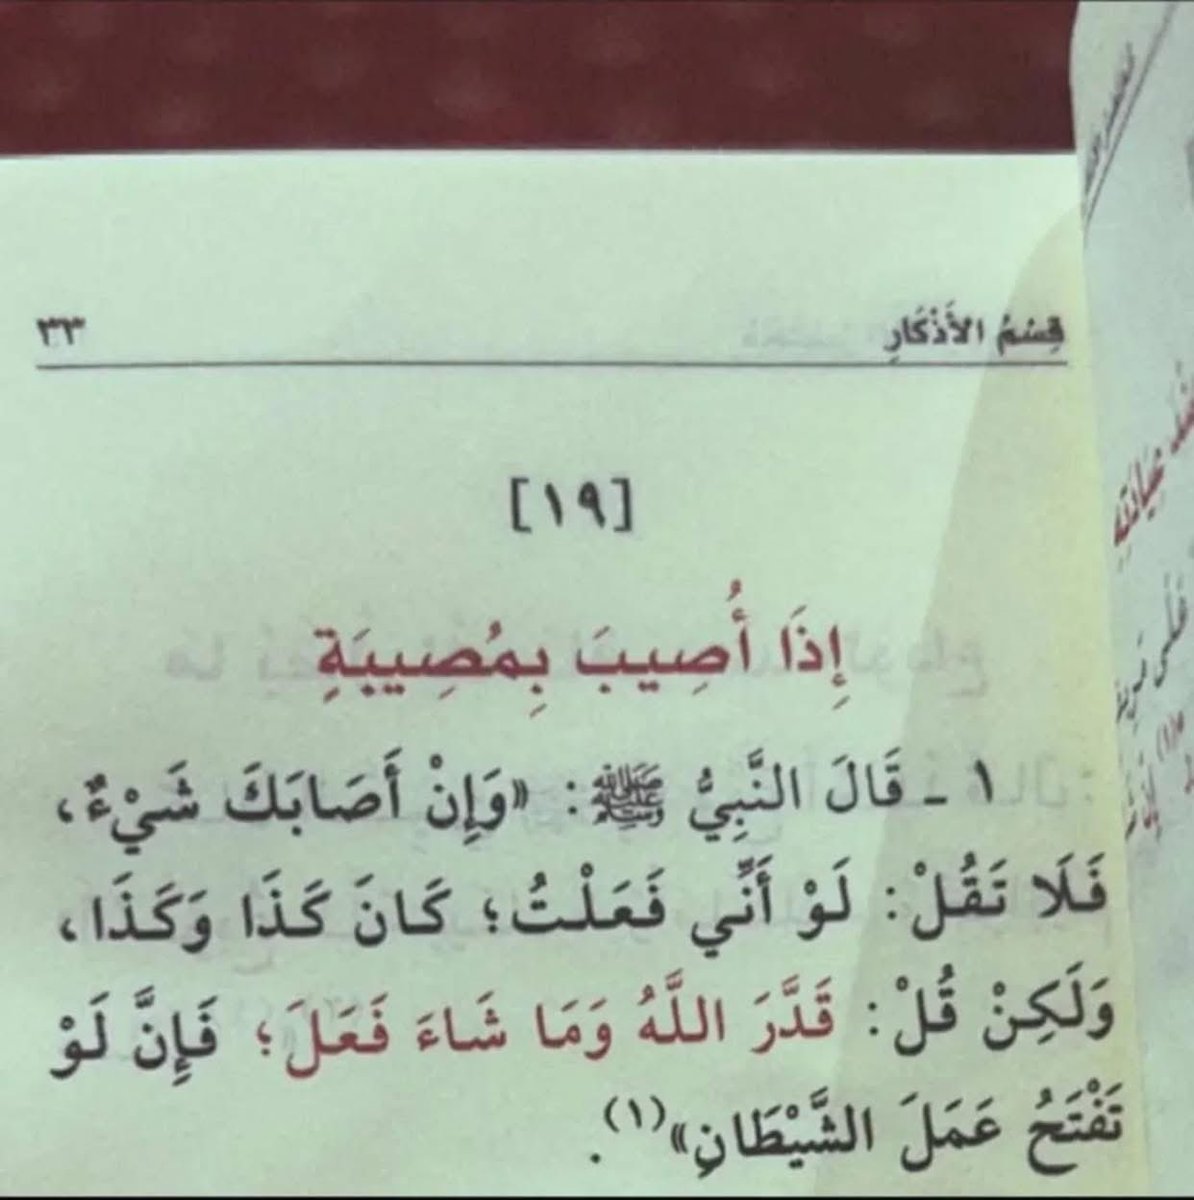 قِسْمُ الأَذْكَارِ ٣٣
[١٩]
إِذَا أُصِيبَ بِمُصِيبَةٍ
١ ـ قَالَ النَّبِيُّ ﷺ: «وَإِنْ أَصَابَكَ شَيْءٌ،
فَلَا تَقُلْ: لَوْ أَنِّي فَعَلْتُ؛ كَانَ كَذَا وَكَذَا،
وَلَكِنْ قُلْ: قَدَّرَ اللَّهُ وَمَا شَاءَ فَعَلَ؛ فَإِنَّ لَوْ
تَفْتَحُ عَمَلَ الشَّيْطَانِ»(١).